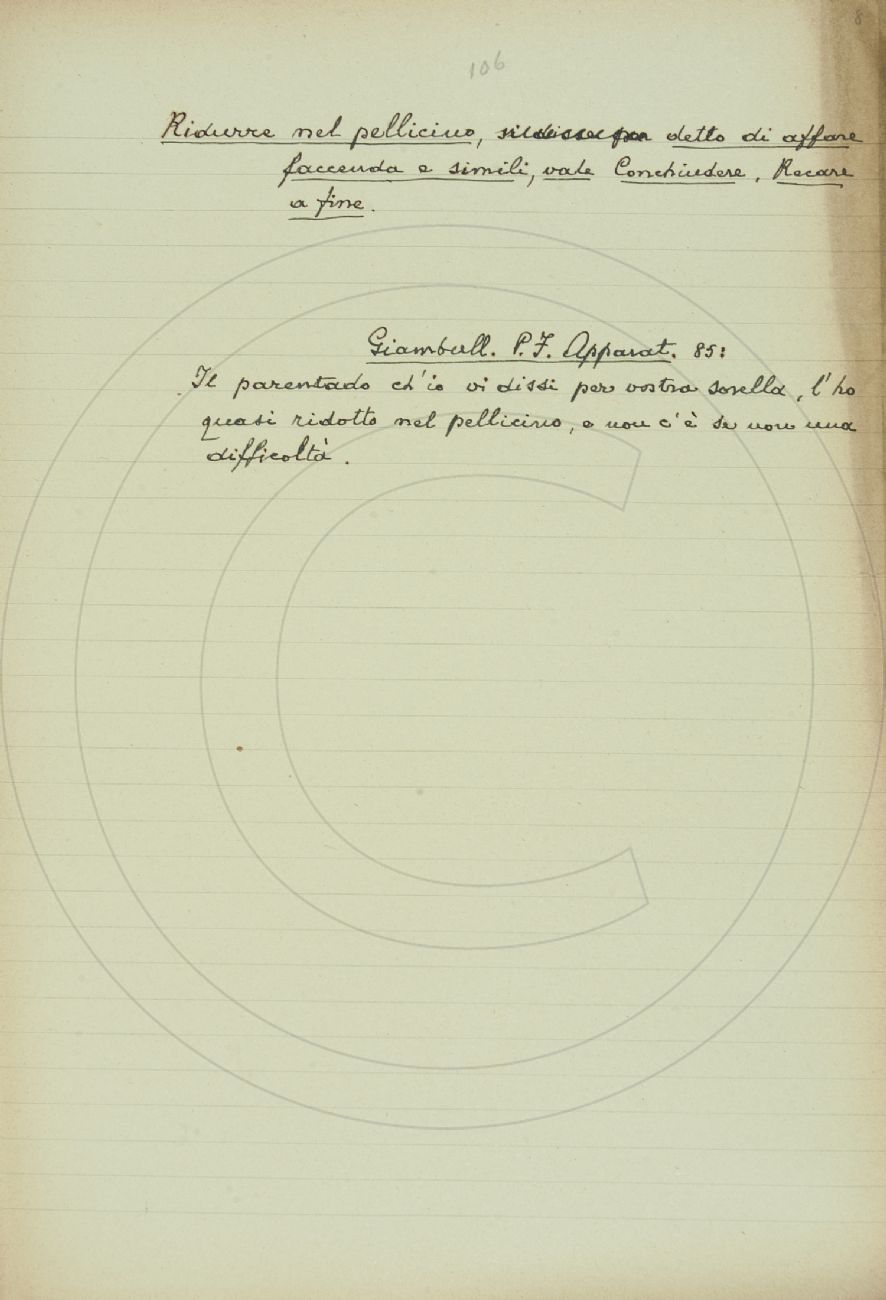 8
106
Ridurre nel pellicino, si disse per detto di affare
faccenda e simili, vale Conchiudere, Recare
a fine.
Giambull. P. F. Apparat. 85:
Il parentado ch'io vi dissi per vostra sorella, l'ho
quasi ridotto nel pellicino, e non c'è se non una
difficoltà.